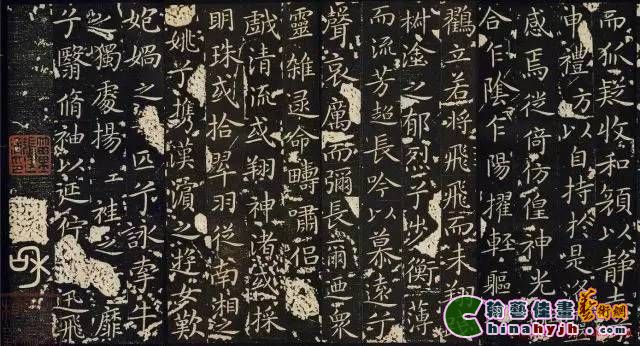 而狐疑收和顏以静
申禮方以自持於是
感焉徙倚彷徨神光
合乍陰乍陽擢輕軀
鸖立若將飛飛而未翔
椒塗之郁烈兮步衡薄
而流芳超長吟以慕遠兮
聲哀厲而彌長爾迺衆
靈雑遝命疇嘯侣
戯清流或翔神渚或採
明珠或拾翠羽從南湘之
姚兮携漢濱之遊女歎
妃媧之匹兮詠牽牛
之獨處揚袿之靡
兮翳脩袖以延佇迅飛
翰藝佳畫藝術網
Chinahyjh.com